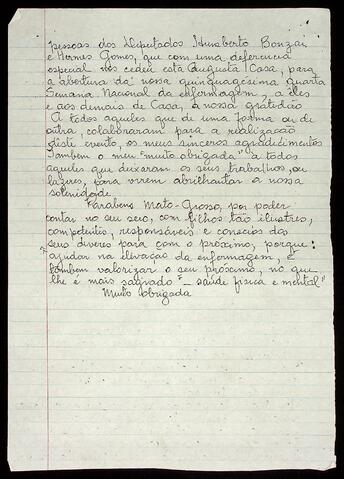 pessoas dos Deputados Humberto Bonzai
e Hermes Gomes, que com uma deferencia
especial nos cedeu esta Augusta Casa, para
a abertura da nossa quinquagésima quarta
Semana Nacional da enfermagem, a eles
e aos demais de Casa, a nossa gratidão
A todos aqueles que de uma forma ou de
outra, colaboraram para a realização
deste evento, os meus sinceros agradicimentos
Também o meu "muito obrigada" a todos
aqueles que deixaram os seus trabalhos, ou
lazeres, para virem abrilhantar a nossa
solenidade.
Parabens Mato-Grosso, por poder
contar no seu seio, com filhos tão ilustres,
competentes, responsáveis e conscios dos
seus diveres para com o próximo, porque:
"ajudar na elevação da enfermagem, é
também valorizar o seu próximo, no que
lhe é mais sagrado" - saúde fisica e mental"
Muito Obrigada